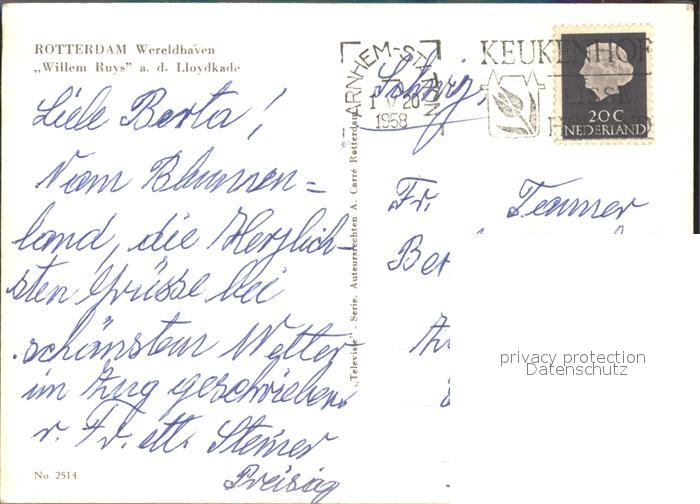 ROTTERDAM Wereldhaven
„Willem Ruys" a. d. Lloydkade
Liebe Berta!
Vom Blumen=
land, die Herzlich-
sten Grüsse bei
schönstem Wetter
im Zug geschrieben
v. Fr. ett. Steiner
Preisig
No 2514
„Televisie". Serie. Auteursrechten A. Carré Rotterdam
ARNHEM-STATION
1 V 20
1958
KEUKENHOF
LISSE
20 C
NEDERLAND
Schweiz
Fr. Teamer
Ber
privacy protection
Datenschutz